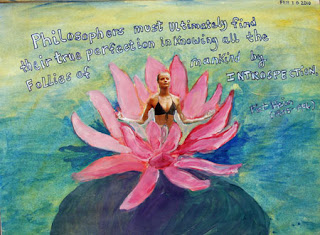 FEB 19 2008
Philosophers must ultimately find
their true perfection in knowing all the
Follies of mankind by
INTROSPECTION.